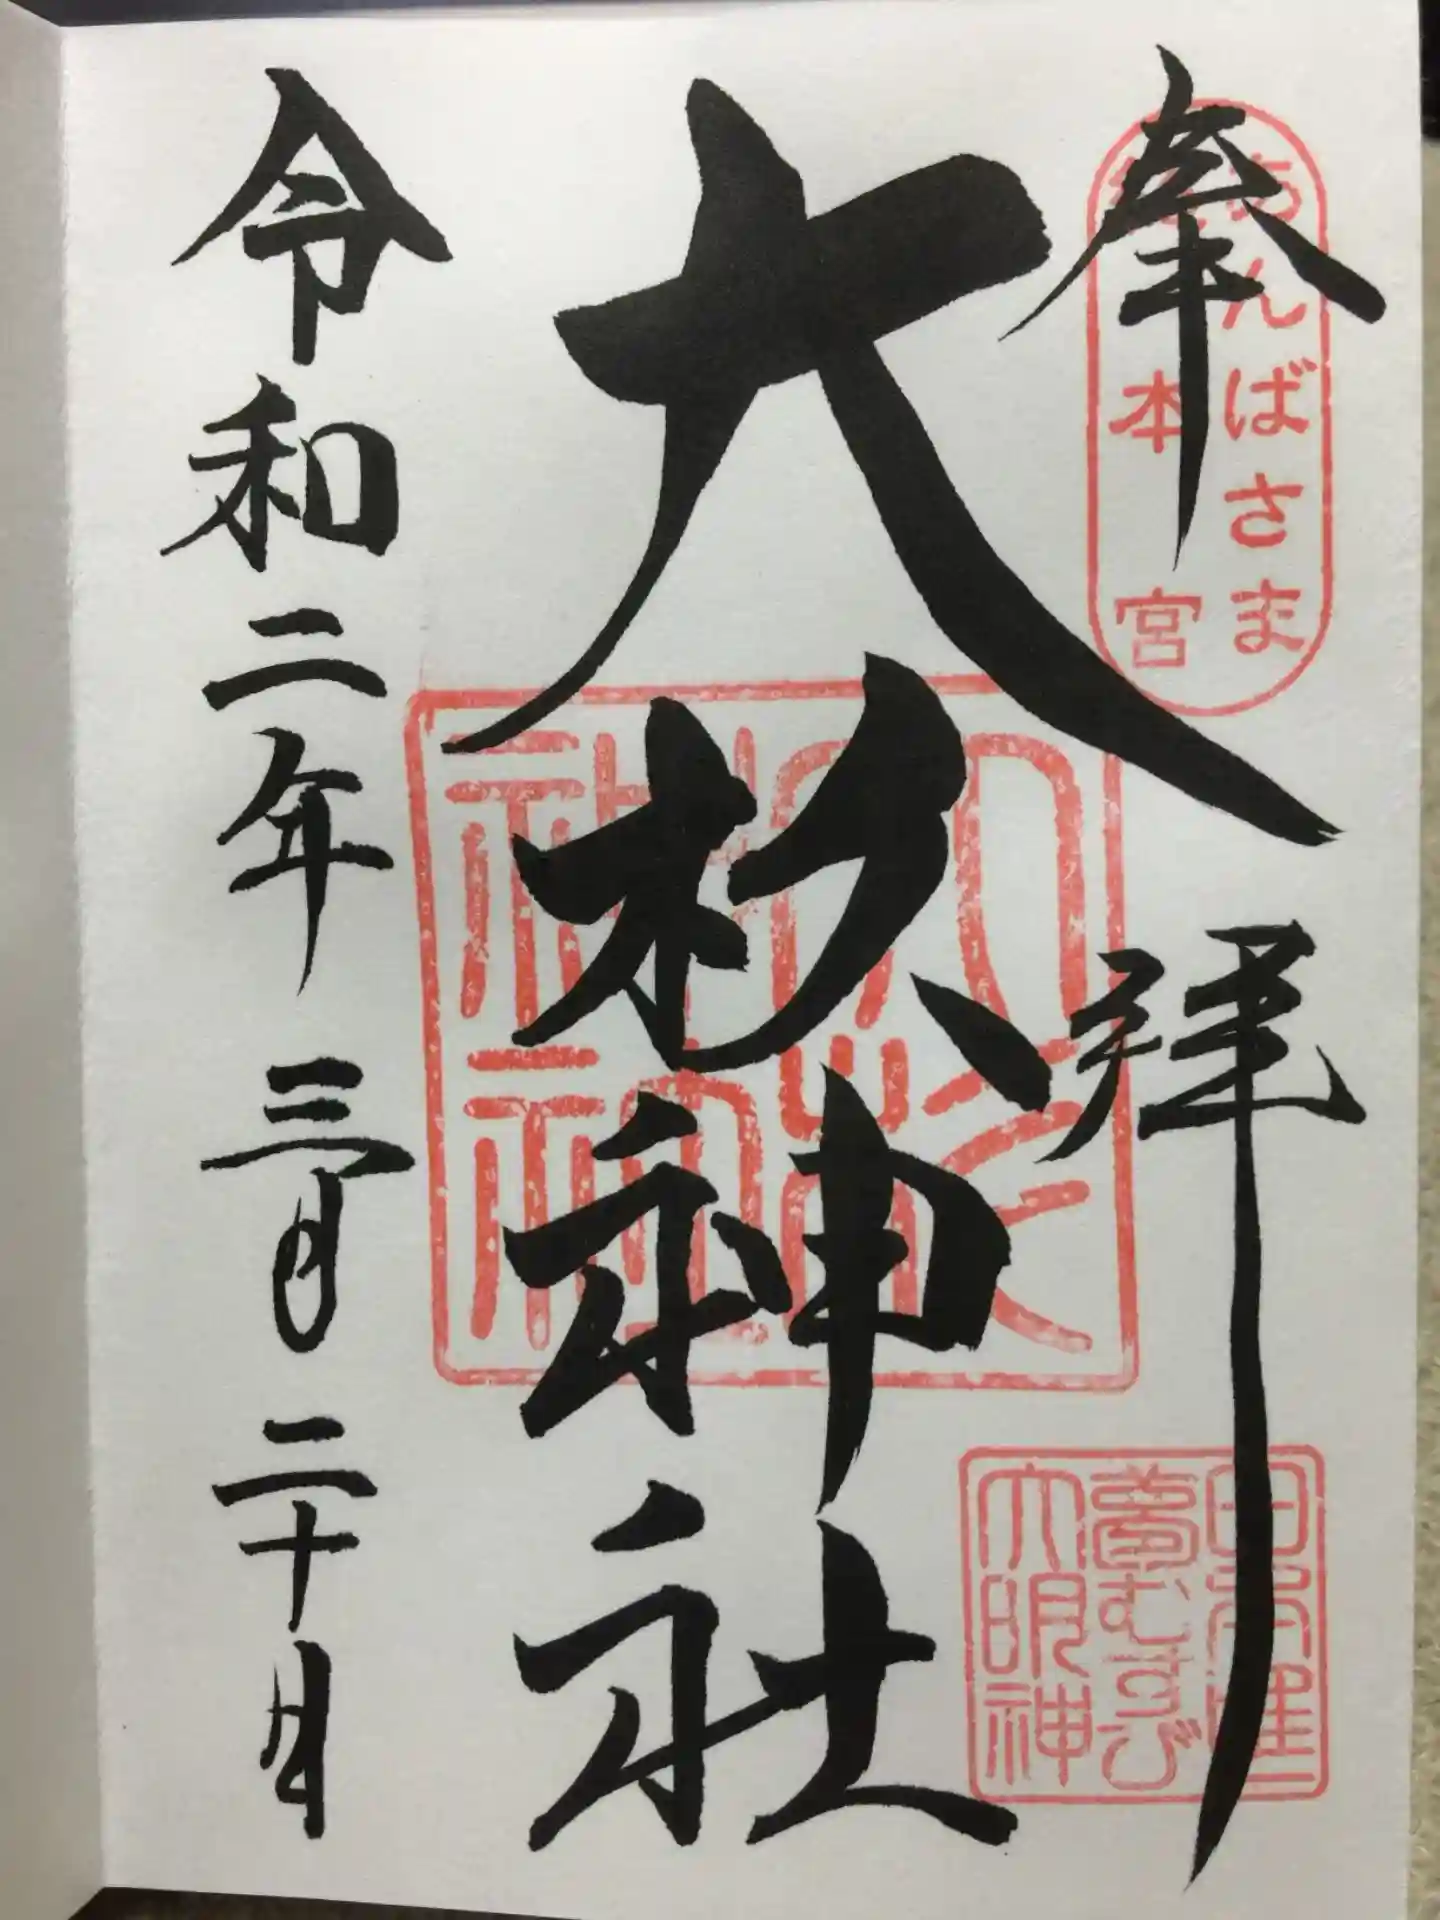 奉拝
あんばさま
総本宮
大杉神社
日本唯一
夢むすび
大明神
令和二年三月二十日